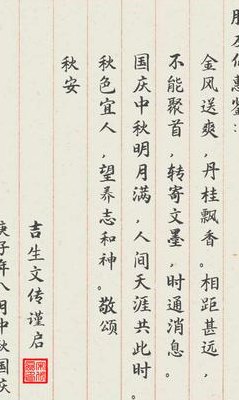 朋友伉惠鉴：
金风送爽，丹桂飘香。相距甚远，
不能聚首，转寄文墨，时通消息。
国庆中秋明月满，人间天涯共此时。
秋色宜人，望养志和神。敬颂
秋安
吉生文传谨启
庚子年八月中秋国庆